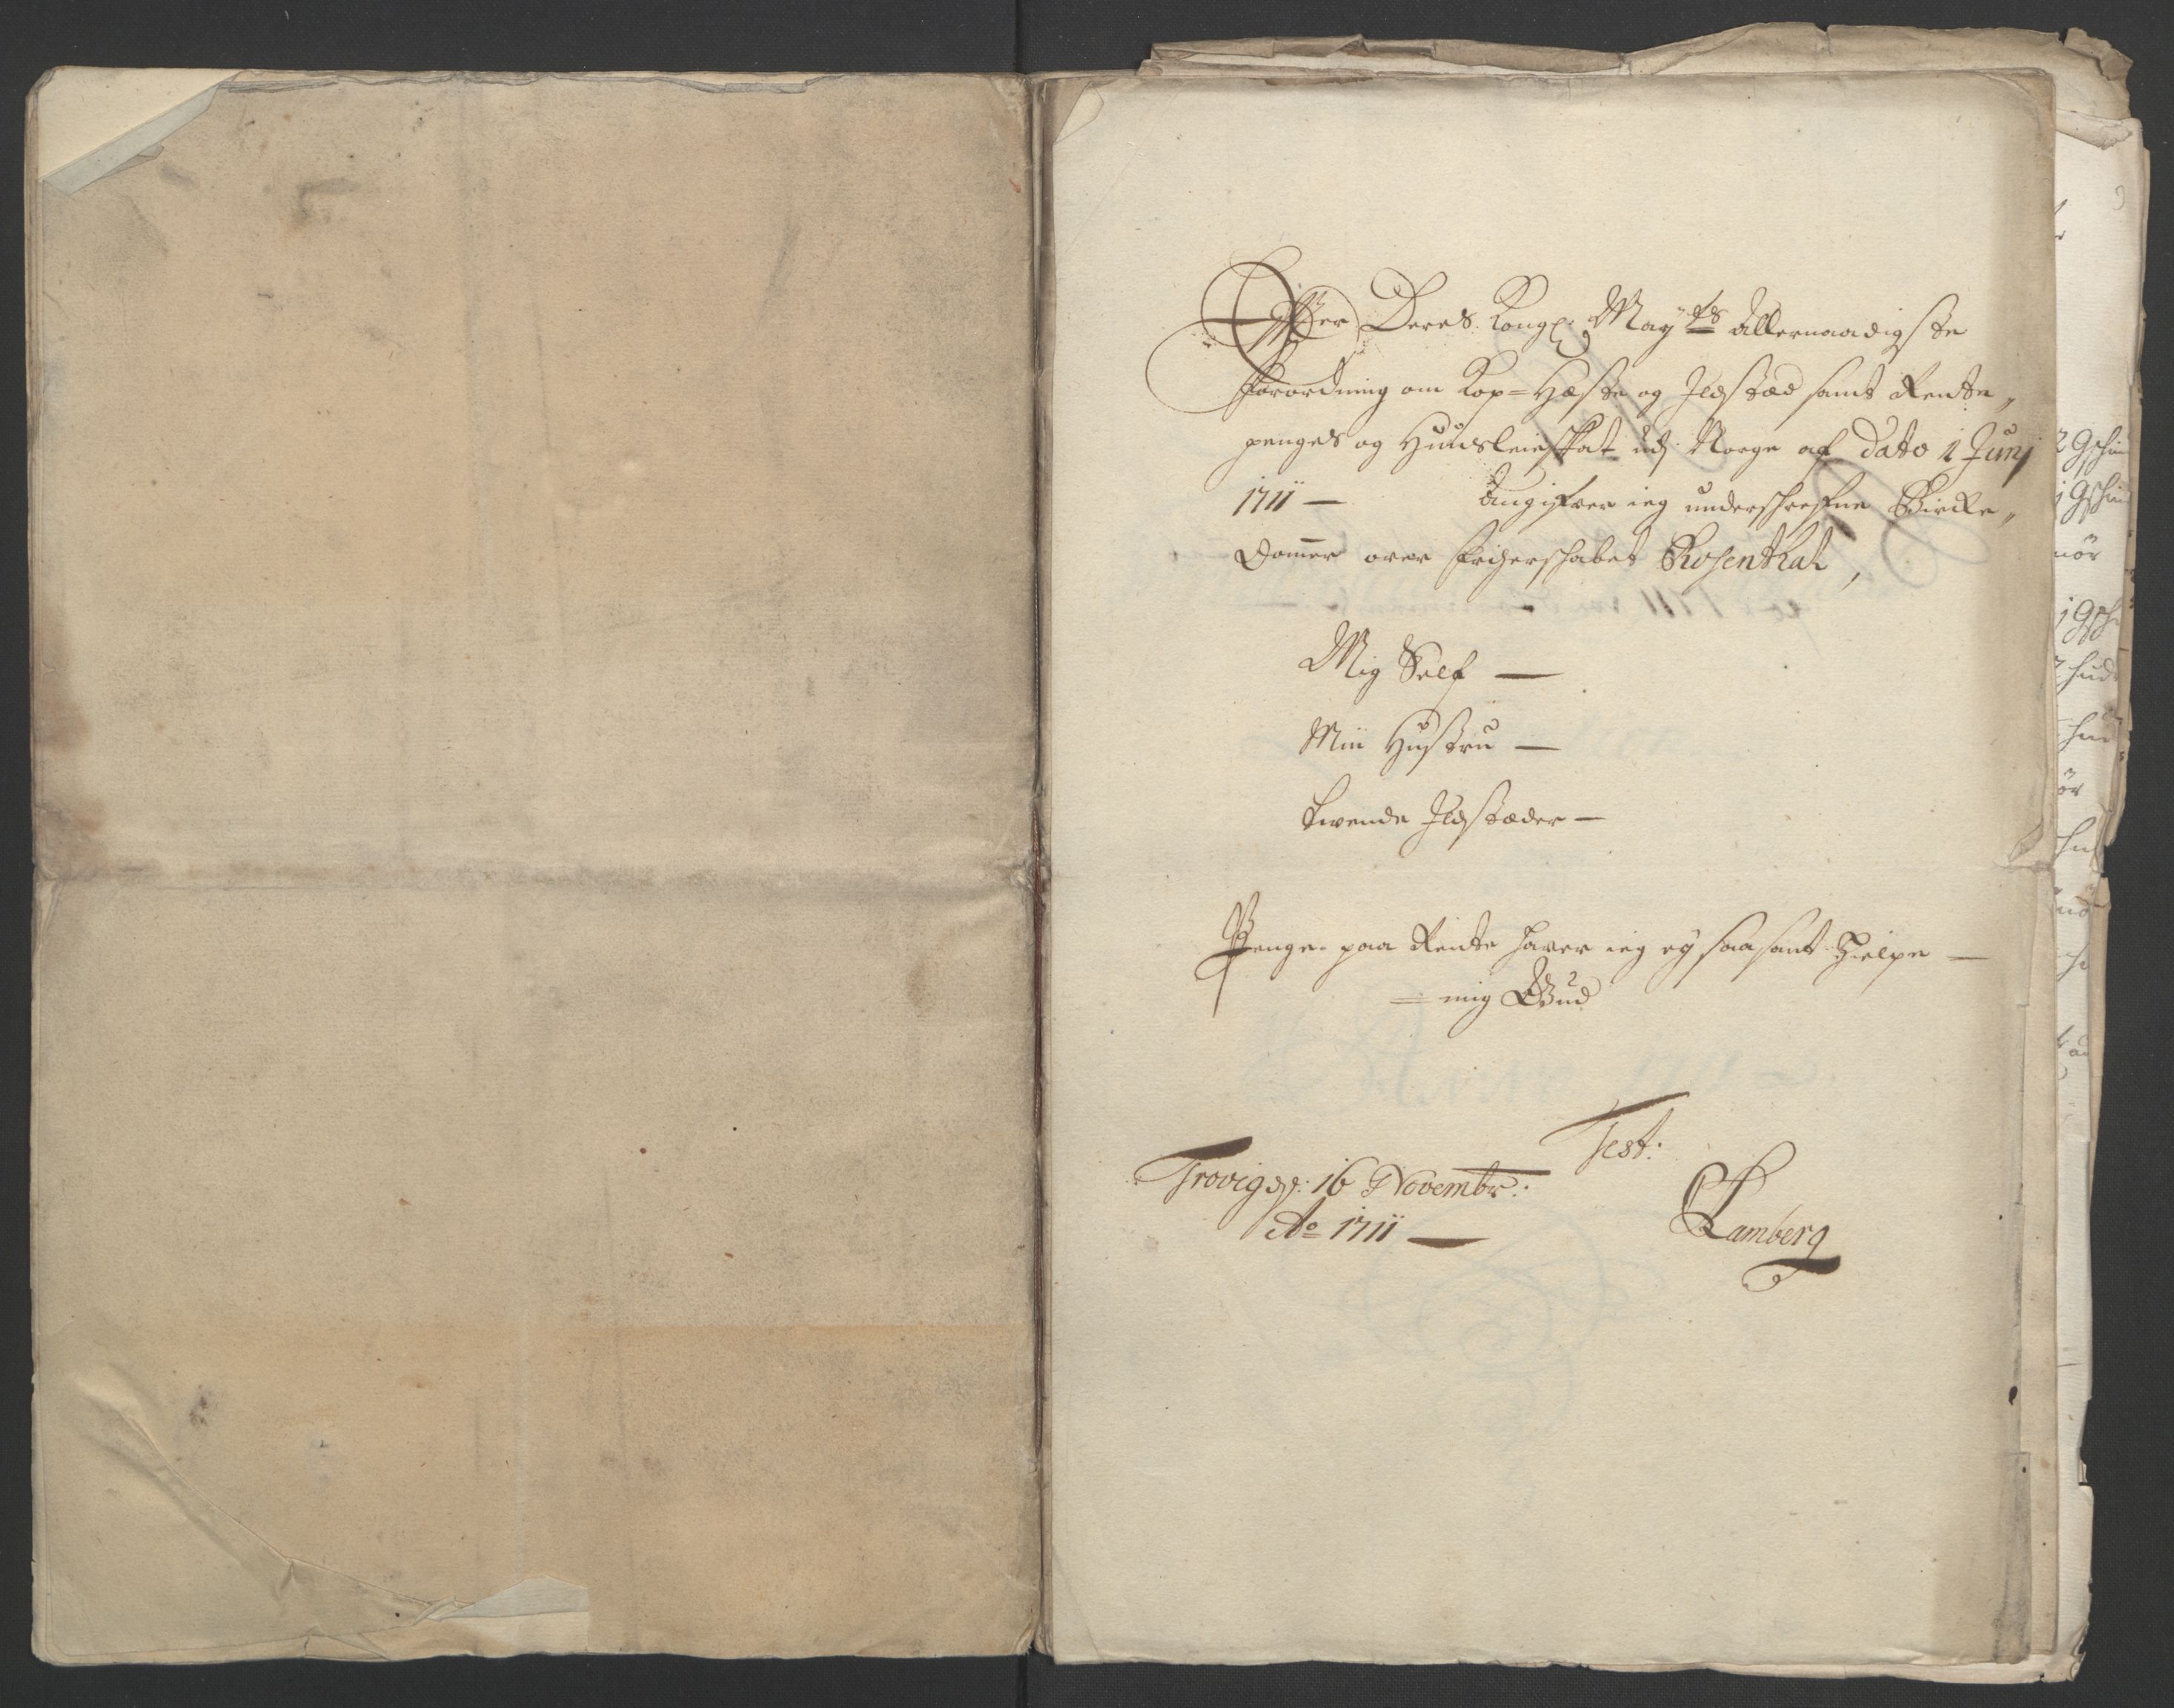 Effter Deres Kongl: May:ts allernaadigste
forordning om Kop= Hæste og Ildsted samt Rente„
penges og Huusleieskat udj Norge af dato 1 Junj
1711 — Angifver ieg underschrefne Bircke„
dom̄er over friherschabet Rosenthal,
Mig Self —
Min Hustru —
tvende Ildstæder —
Penge paa Rente haver ieg ey saa sant Hielpe —
= mig Gud
Test:
16 Novembr:
Ao 1711 —
Lamberg